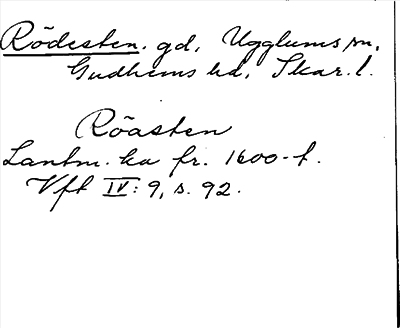 Rödesten. gd, Ugglums sn,
Gudhems hd, Skar. l.
Röasten
Lantm. ka fr. 1600-t.
Vft IV: 9, s. 92.